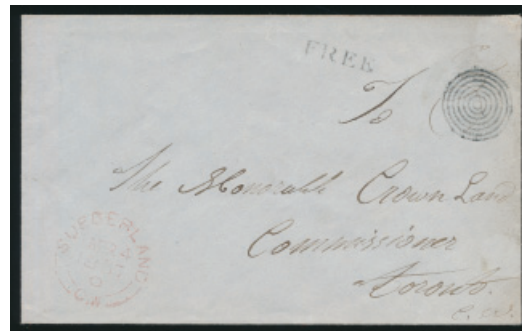 FREE
To
The Honorable Crown Land
Commissioner
Toronto.
C. W.
SUNDERLAND
C.W